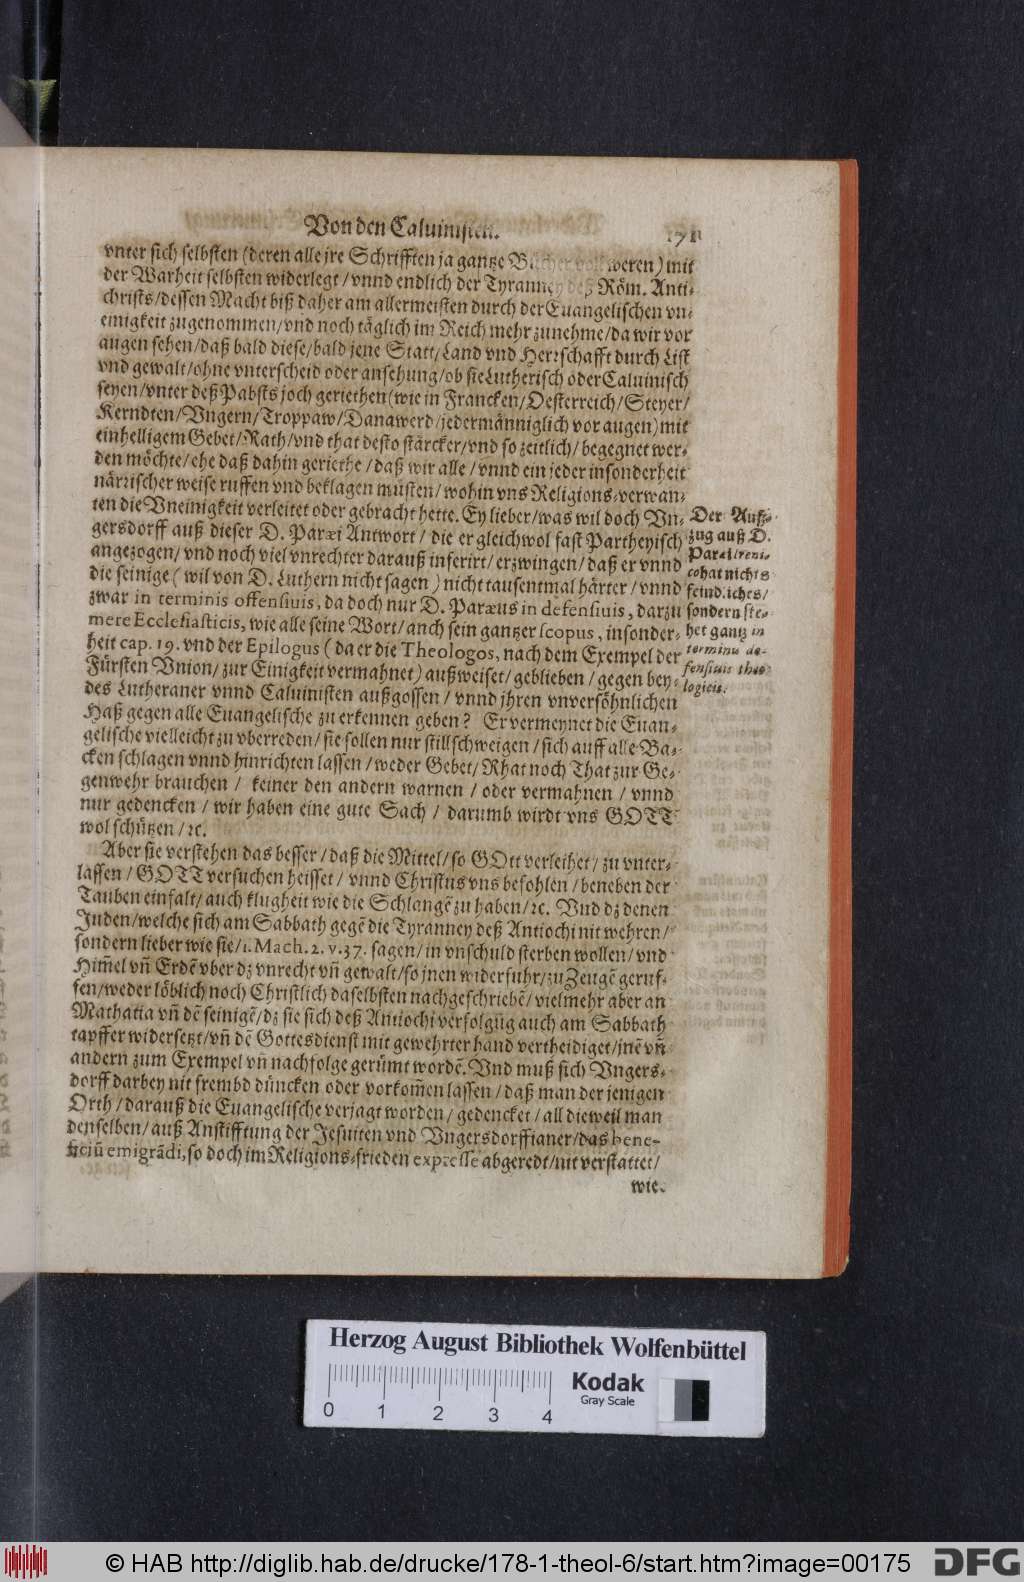 Von den Caluinisten.
171
vnter sich selbsten (deren alle jre Schrifften ja gantze Bücher voll weren) mit
der Warheit selbsten widerlegt / vnnd endlich der Tyranney deß Röm. Anti-
christs / dessen Macht biß daher am allermeisten durch der Euangelischen vn-
einigkeit zugenommen / vnd noch täglich im Reich mehr zunehme / da wir vor
augen sehen / daß bald diese / bald jene Statt / Land vnd Herrschafft durch List
vnd gewalt / ohne vnterscheid oder ansehung / ob sie Lutherisch oder Caluinisch
seyen / vnter deß Pabsts joch geriethen (wie in Francken / Oesterreich / Steyer /
Kerndten / Vngern / Troppaw / Danawerd / jedermänniglich vor augen) mit
einhelligem Gebet / Rath / vnd that desto stärcker / vnd so zeitlich / begegnet wer-
den möchte / ehe daß dahin geriethe / daß wir alle / vnnd ein jeder insonderheit
närrischer weise ruffen vnd beklagen müsten / wohin vns Religions-verwan-
ten die Vneinigkeit verleitet oder gebracht hette. Ey lieber / was wil doch Vn-
gersdorff auß dieser D. Paræi Antwort / die er gleichwol fast Partheyisch
angezogen / vnd noch viel vnrechter darauß inferirt / erzwingen / daß er vnnd
die seinige (wil von D. Luthern nicht sagen) nicht tausentmal härter / vnnd
zwar in terminis offensiuis, da doch nur D. Paræus in defensiuis, darzu
mere Ecclesiasticis, wie alle seine Wort / auch sein gantzer scopus, insonder-
heit cap. 19. vnd der Epilogus (da er die Theologos, nach dem Exempel der
Fürsten Vnion / zur Einigkeit vermahnet) außweiset / geblieben / gegen bey-
des Lutheraner vnnd Caluinisten außgossen / vnnd jhren vnversöhnlichen
Haß gegen alle Euangelische zu erkennen geben? Er vermeynet die Euan-
gelische vielleicht zu vberreden / sie sollen nur still schweigen / sich auff alle Ba-
cken schlagen vnnd hinrichten lassen / weder Gebet / Rhat noch That zur Ge-
genwehr brauchen / keiner den andern warnen / oder vermahnen / vnnd
nur gedencken / wir haben eine gute Sach / darumb wirdt vns GOTT
wol schützen / ꝛc.
Der Auß-
zug auß D.
Paræi Ireni-
co hat nichts
feindliches /
sondern ste-
het gantz in
terminis de-
fensiuis theo
logicis.
Aber sie verstehen das besser / daß die Mittel / so GOtt verleihet / zu vnter-
lassen / GOTT versuchen heisset / vnnd Christus vns befohlen / beneben der
Tauben einfalt / auch klugheit wie die Schlangẽ zu haben / ꝛc. Vnd dz denen
Juden / welche sich am Sabbath gegẽ die Tyranney deß Antiochi nit wehren /
sondern lieber wie sie / 1. Mach. 2. v. 37. sagen / in vnschuld sterben wollen / vnd
Him̃el vñ Erdẽ vber dz vnrecht vñ gewalt / so jnen widerfuhr / zu Zeugẽ geruf-
fen / weder löblich noch Christlich daselbsten nachgeschriebẽ / vielmehr aber an
Mathatia vñ dẽ seinigẽ / dz sie sich deß Antiochi verfolgũg auch am Sabbath
tapffer widersetzt / vñ dẽ Gottesdienst mit gewehrter hand vertheidiget / jnẽ vñ
andern zum Exempel vñ nachfolge gerümt wordẽ. Vnd muß sich Vngers-
dorff darbey nit frembd düncken oder vorkom̃en lassen / daß man der jenigen
Orth / darauß die Euangelische verjagt worden / gedencket / all dieweil man
denselben / auß Anstifftung der Jesuiten vnd Vngersdorffianer / das bene-
ficiũ emigrãdi, so doch im Religions-frieden expresse abgeredt / nit verstattet /
wie
Herzog August Bibliothek Wolfenbüttel
Kodak
Gray Scale
0 1 2 3 4
© HAB http://diglib.hab.de/drucke/178-1-theol-6/start.htm?image=00175
DFG